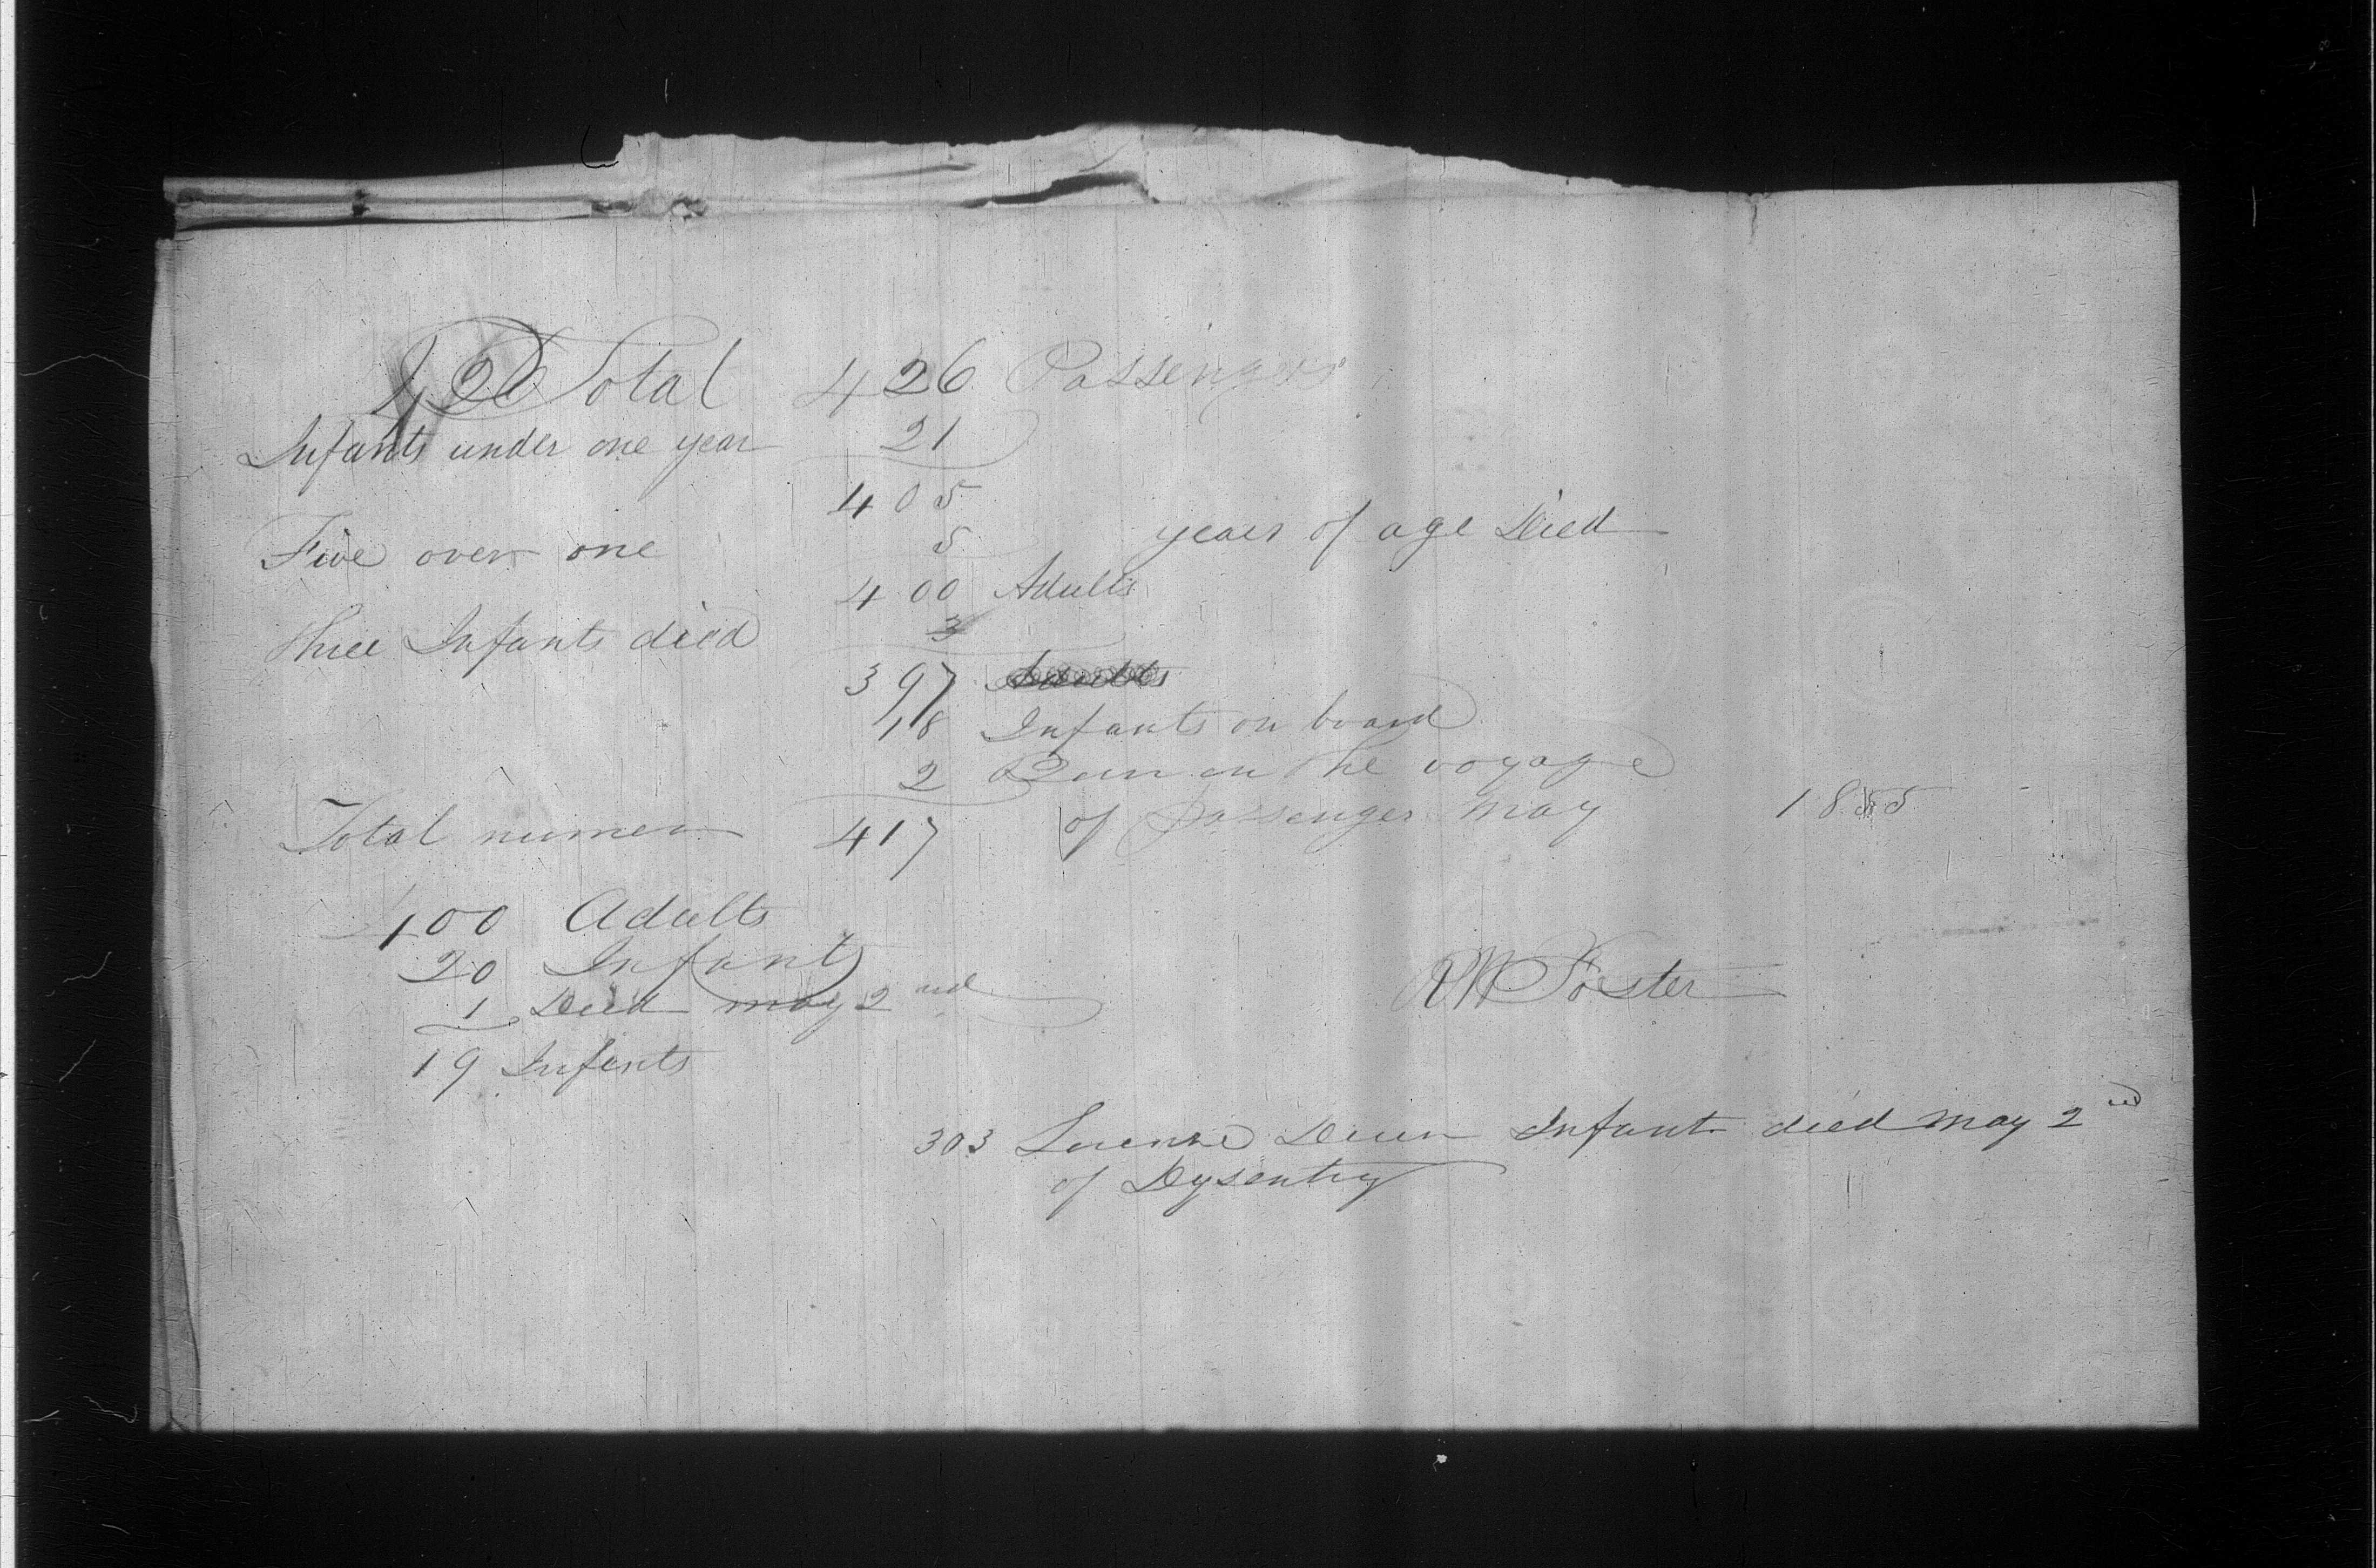 Total 426 Passengers
Infants under one year 21
405
Five over one 5 years of age Died
400 Adults
three Infants died 3
397 Adults
18 Infants on board
2 Born on the voyage
Total numer 417 of passenger May 1855
400 Adults
20 Infants
1 Died may 2nd
19 Infants
R W Foster
303 Infant died May 2nd
of Dysentry